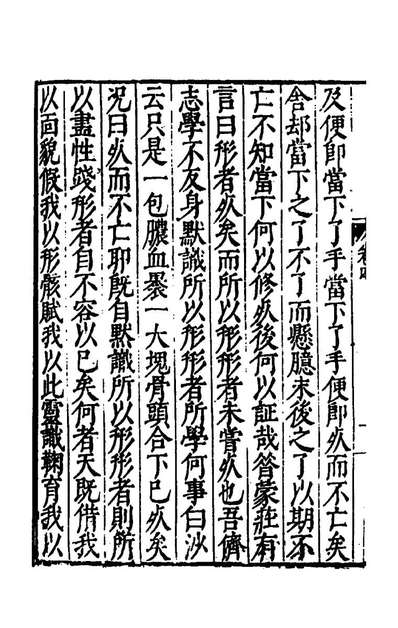 及便即當下了手當下了手便即死而不亡矣
舍却當下之了不了而懸臆末後之了以期不
亡不知當下何以修死後何以証哉昝蒙莊有
言曰形者死矣而所以形形者未嘗死也吾儕
志學不反身默識所以形形者所學何事白沙
云只是一包膿血裹一大塊骨頭合下已死矣
况曰死而不亡耶既自默識所以形形者則所
以盡性踐形者自不容以已矣何者天既借我
以面貌假我以形骸賦我以此靈識鞠育我以